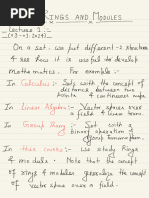 RINGS AND MODULES
Lectures 1 :-
On a set we put different-2 structure
& see how it is useful to develop
Mathematics. For example :-
In Calculus : Sets with the concept of
distance between two
points & continuous maps
In Linear Algebra :- Vector spaces over
a field.
In Group Theory :- Set with a
binary operation of
In this course :- we study Rings
& modules. Note that the concept
of rings & modules generalizes the concept
of vector space over a field.